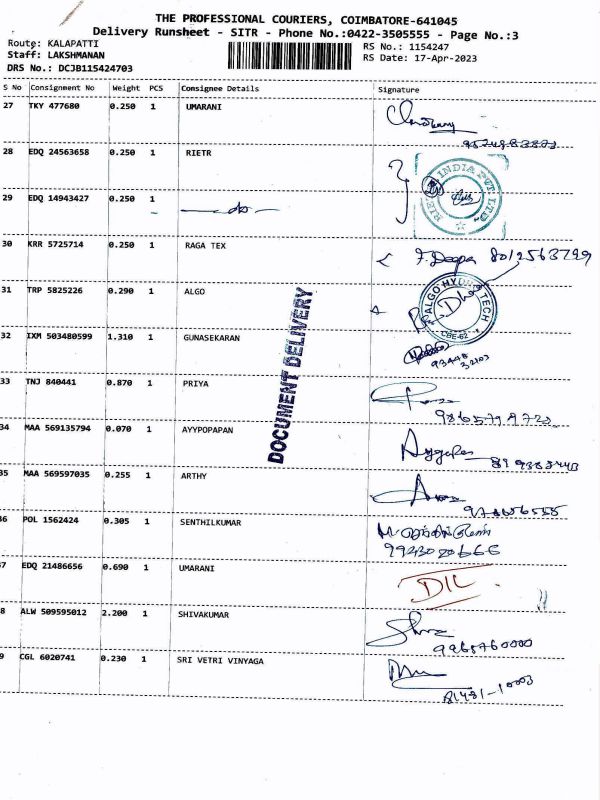 THE PROFESSIONAL COURIERS, COIMBATORE-641045
Delivery Runsheet - SITR - Phone No.:0422-3505555 - Page No.:3
Route: KALAPATTI
RS No.: 1154247
Staff: LAKSHMANAN
RS Date: 17-Apr-2023
DRS No.: DCJB115424703
S No Consignment No Weight PCS Consignee Details Signature
27 TKY 477680 0.250 1 UMARANI
28 EDQ 24563658 0.250 1 RIETR
INDIA PVT. LTD
29 EDQ 14943427 0.250 1 —do—
30 KRR 5725714 0.250 1 RAGA TEX F. Deepa 8012563799
31 TRP 5825226 0.290 1 ALGO
ALGO HYDRO TECH
CBE-62
32 IXM 503480599 1.310 1 GUNASEKARAN
93448
DOCUMENT DELIVERY
33 TNJ 840441 0.870 1 PRIYA
34 MAA 569135794 0.070 1 AYYPOPAPAN
35 MAA 569597035 0.255 1 ARTHY
36 POL 1562424 0.305 1 SENTHILKUMAR
37 EDQ 21486656 0.690 1 UMARANI
DIL
38 ALW 509595012 2.200 1 SHIVAKUMAR Shiva
9965760000
39 CGL 6020741 0.230 1 SRI VETRI VINYAGA
81481-10003